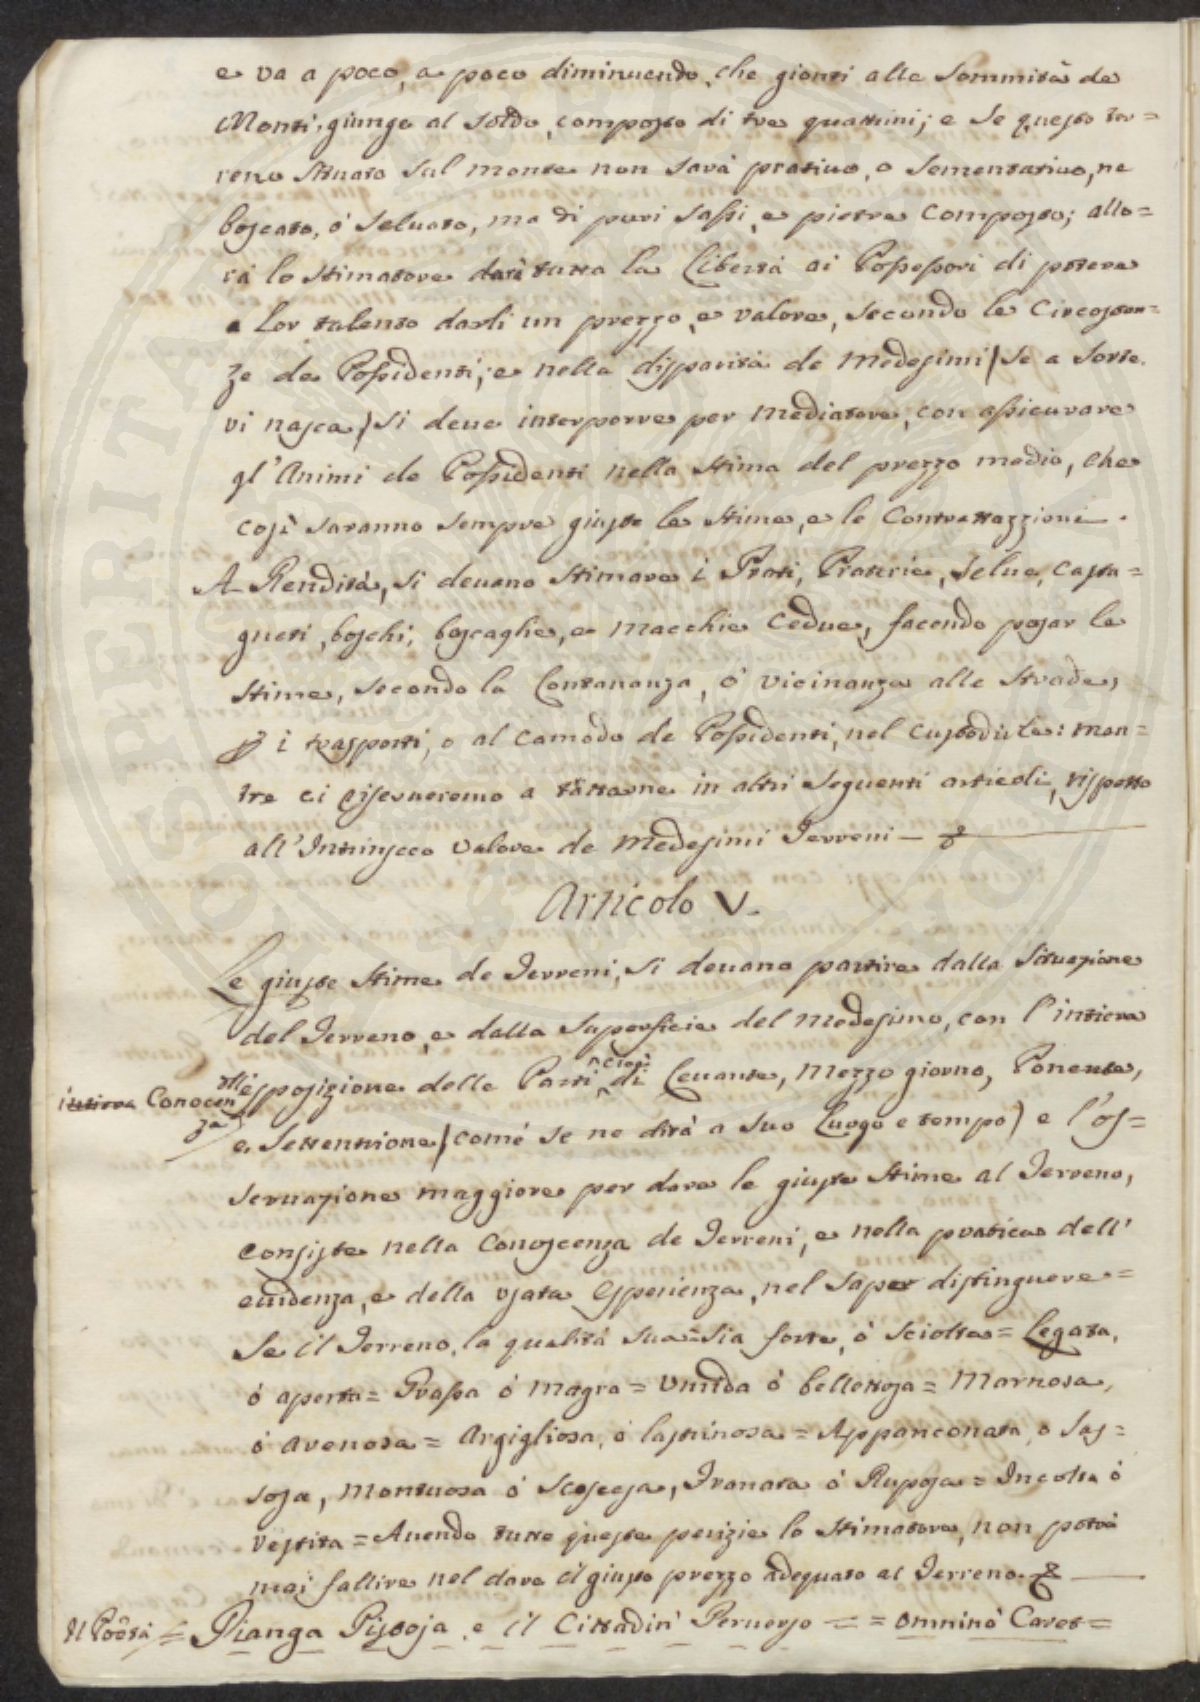 e va a poco, a poco diminuendo, che gionti alla Sommità de
Monti, giunga al Soldo, composto di tre quattrini; e Se questo ter=
reno Situato Sul monte non Sarà prativo, o Sementativo, ne
boscato, ó Selvato, ma di puri Sassi, e pietre Composto; allo=
rà lo Stimatore darà tutta la Libertà ai Possessori di potere
a Lor talento darli un prezzo, e valore, Secondo le Circostan=
ze de Possidenti; e nella disparità de Medesimi (Se a Sorte
vi nasca) Si deue interporre per Mediatore, con assicurare
gl'Animi de Possidenti nella Stima del prezzo medio, che
così Saranno Sempre giuste le Stime, e le Contrattazzioni.
A Rendita, Si deuano Stimare i Prati, Praterie, Selue, Casta=
gneti, boschi, boscaglie, e Macchie Cedue, facendo posar le
Stime, Secondo la Lontananza, ó vicinanza alle Strade,
i trasporti, o al Camodo de Possidenti, nel Custodirle: men=
tre ci riserueremo a trattarne in altri Seguenti articoli, rispetto
all'Intrinseco valore de Medesimi Terreni —
Articolo V.
Le giuste Stime de Terreni, Si deuano partire dalla Situazione
del Terreno, e dalla Superficie del Medesimo, con l'intiera
esposizione delle Parti cioè di Leuante, Mezzo giorno, Ponente,
intiera Conoscen
za
e Settentrione (come Se ne dirà a Suo Luogo e tempo) e l'os=
seruazione maggiore per dare le giuste Stime al Terreno,
Consiste nella Conoscenza de Terreni, e nella pratica dell'
euidenza, e della usata Esperienza, nel Saper distinguere=
Se il Terreno, la qualità Sua=Sia forte, ó Sciolta= Legata,
ó aperta= Grassa ó Magra= Umida ó bellettosa= Marnosa,
ó Arenosa= Argigliosa, ó lastrinosa= Appanconata, o Sas=
sosa, Montuosa ó Scoscesa, Franata ó Ruposa= Incolta ó
Vestita= Auendo tutte queste perizie lo Stimatore, non potrà
mai fallire nel dare il giusto prezzo adequato al Terreno.
Il Poeta = Pianga Pistoja, e il Cittadin Peruerso — = omnino Caret=